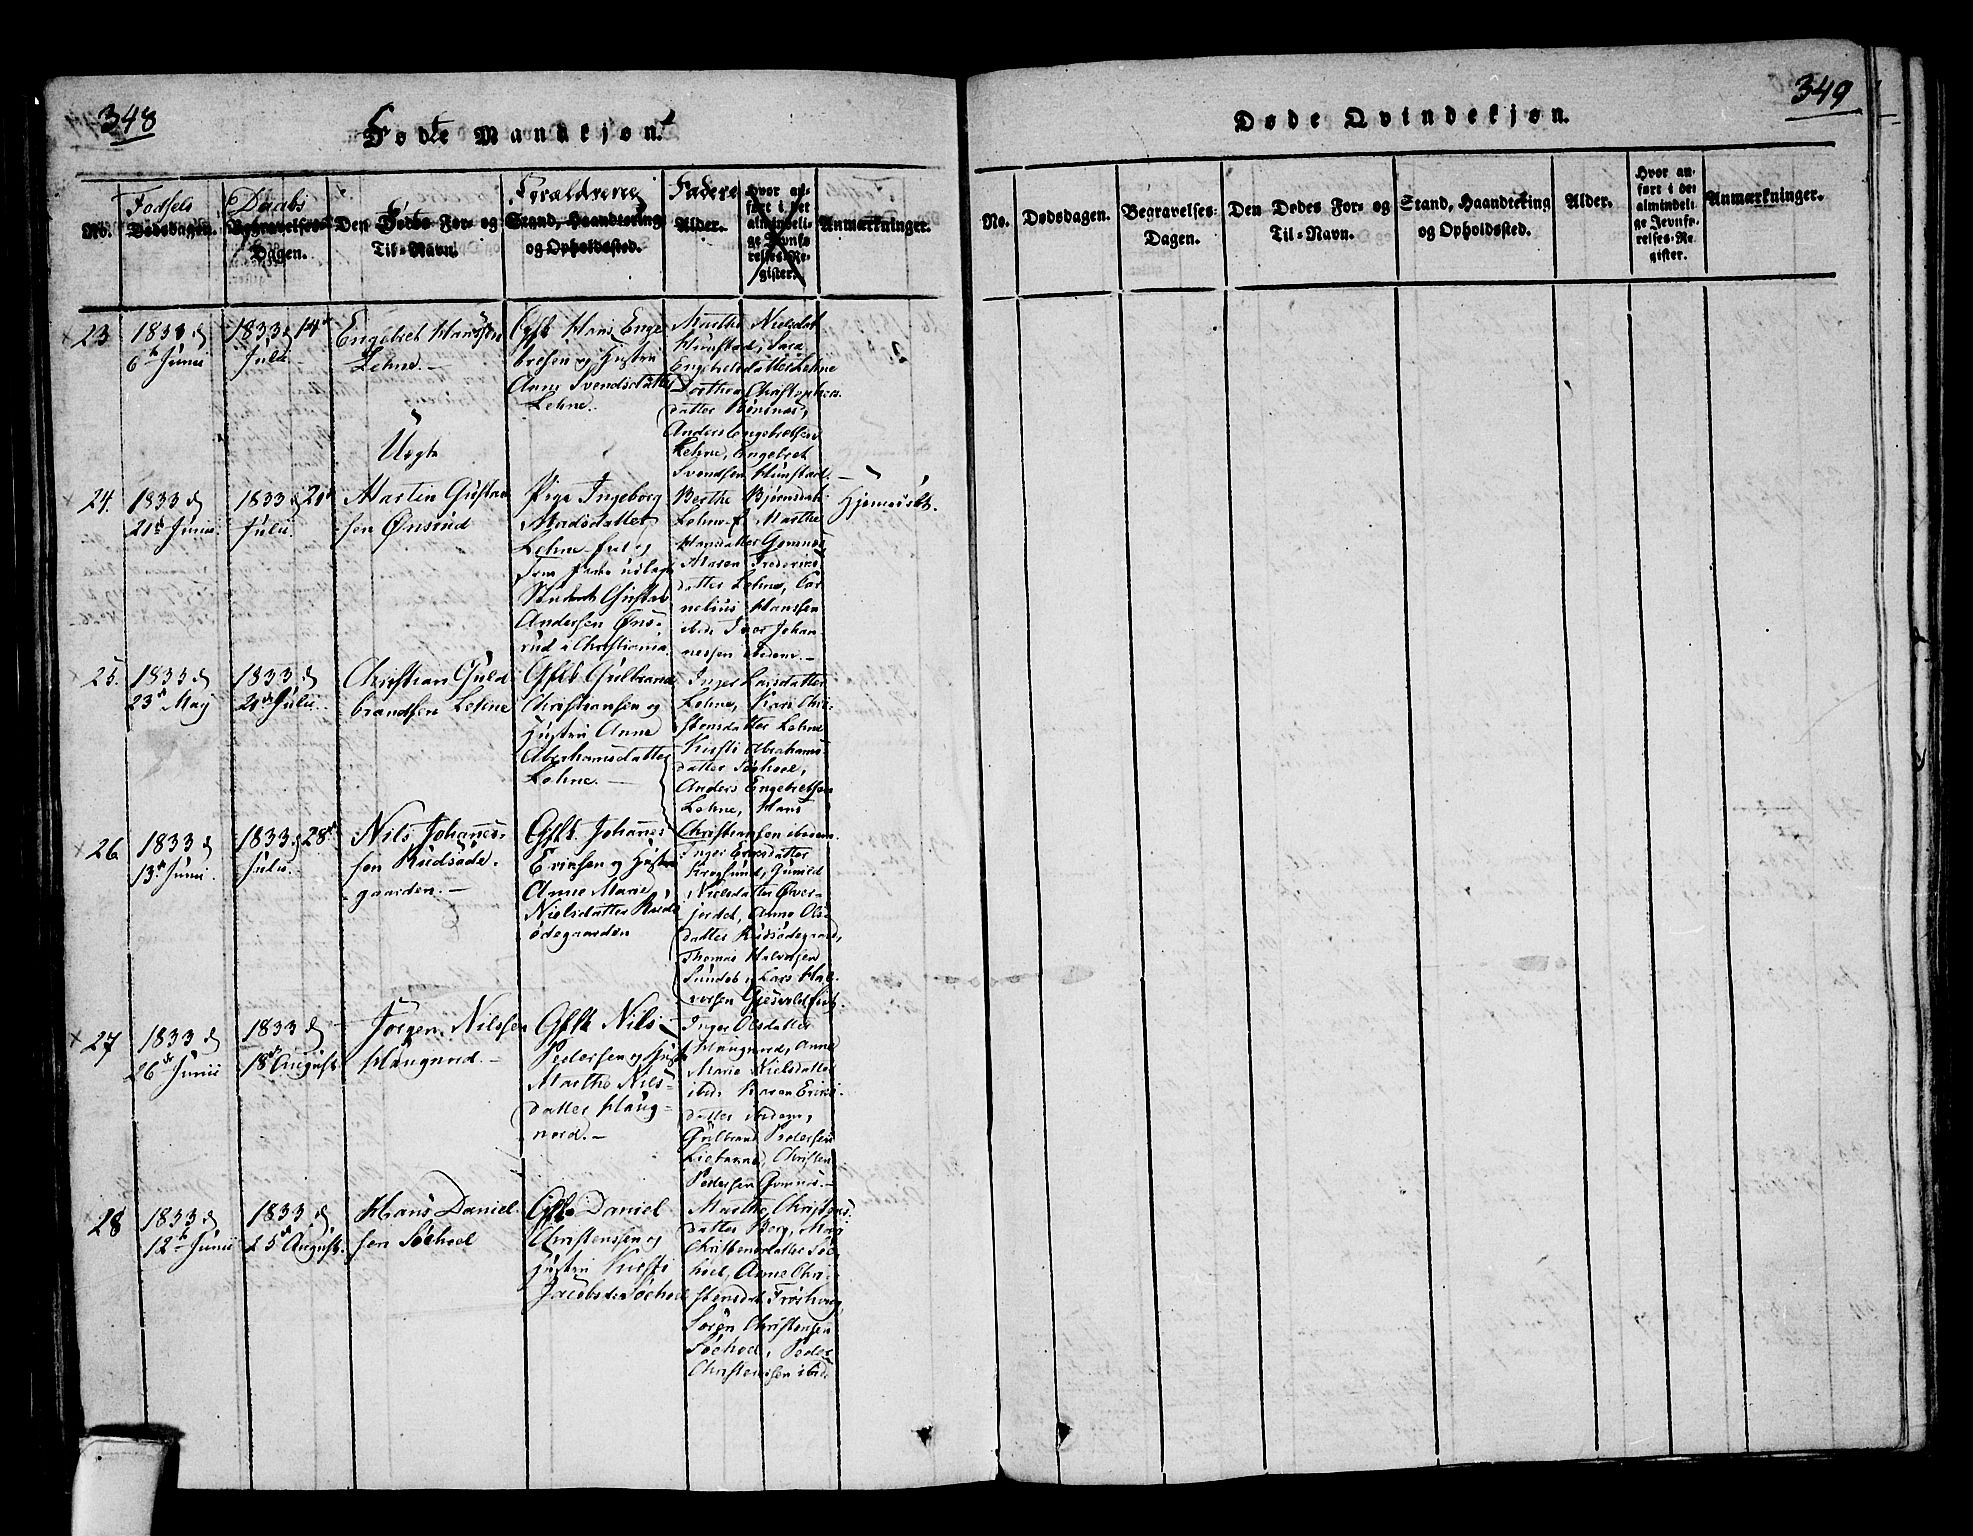 348
Fødte Mandkjøn.
No.
Fødsels
Dødsdagen.
Daabs
Begravelses-
Dagen.
Den Dødes For- og
Til-Navn.
Forældrenes
Stand, Haandtering
og Opholdssted.
Faddere
Alder.
Hvor an-
ført i det
almindeli-
ge Jevnfø-
relses-Re-
gister.
Anmærkninger.
23
1833 d
6te Junii
1833 d 14de
Julii
Engebret Hanssen
Lehne.
Gift Hans Enge
bretsen og Hustru
Anne Svendsdatter
Lehne.
Marthe Nielsdat
Hunstad, Sara
Engebretsdatter Lehne
Dorthea Christophers
datter
Anders Engebretsen
Lehne, Engebret
Svendsen Hunstad.
Uægte
24.
1833 d
21de Junii
1833 d 21de
Julii
Martin Gustav
sen Ønsrud
Pige Ingeborg
Madsdatter
Lehne
Student Gustav
Andersen Øns-
rud i Christiania.
Berthe Bjørnsdat
Lehne Marthe
Hansdatter
Maren Frederiks
datter Lehne, Cor
nelius Hanssen
ibid. Iver Johan
nessen ibidem.
Hjemmedøbt.
25.
1833 d
23de May
1833 d
21de Julii
Christian Guld
brandsen Lehne
Gift Gulbrand
Christiansen og
Hustru Anne
Aberhamsdatter
Lehne.
Inger Larsdatter
Lehne, Kari Chri-
stensdatter Lehne
Kirsti Abrahams
datter Søehoel,
Anders Engebretsen
Lehne, Hans
Christiansen ibidem.
26
1833 d
13de Junii
1833 d 28de
Julii
Nils Johannes-
sen Rudsøde-
gaarden.
Gift Johannes
Eriksen og Hustru
Anne Marie
Nielsdatter Ruds
ødegaarden
Inger Eriksdatter
Krogsund, Gunild
Nielsdatter Over-
jordet, Anne Ols
datter Rudsødegaard,
Thomas Halvorsen
Sundeb Lars Hal
vorsen
27
1833 d
26de Junii
1833 d
18de August
Jørgen Nilssen
Haugnord.
Gift Nils
Pedersen og Hust
Marthe Niels-
datter Haug-
nord.
Inger Olsdatter
Haugnord, Anne
Marie Nielsdatter
ibid. Karen Eriks-
datter ibidem,
Gulbrand Pedersen
Christen
Pedersen
28
1833 d
12te Junii
1833 d
25de August.
Hans Daniel-
sen Søehoel
Gift Daniel
Christenssen og
Hustru Kirsti
Jacobsdr Søehoel
Marthe Christens
datter Berg,
Christensdatter Søe-
hoel, Anne Chri-
stensdat
Søren Christensen
Søehoel, Peder
Christensen ibid.
349
Døde Qvindekjøn.
No.
Dødsdagen.
Begravelses-
Dagen.
Den Dødes For- og
Til-Navn.
Stand, Haandtering
og Opholdssted.
Alder.
Hvor an-
ført i det
almindeli-
ge Jevnfø-
relses-Re-
gister.
Anmærkninger.